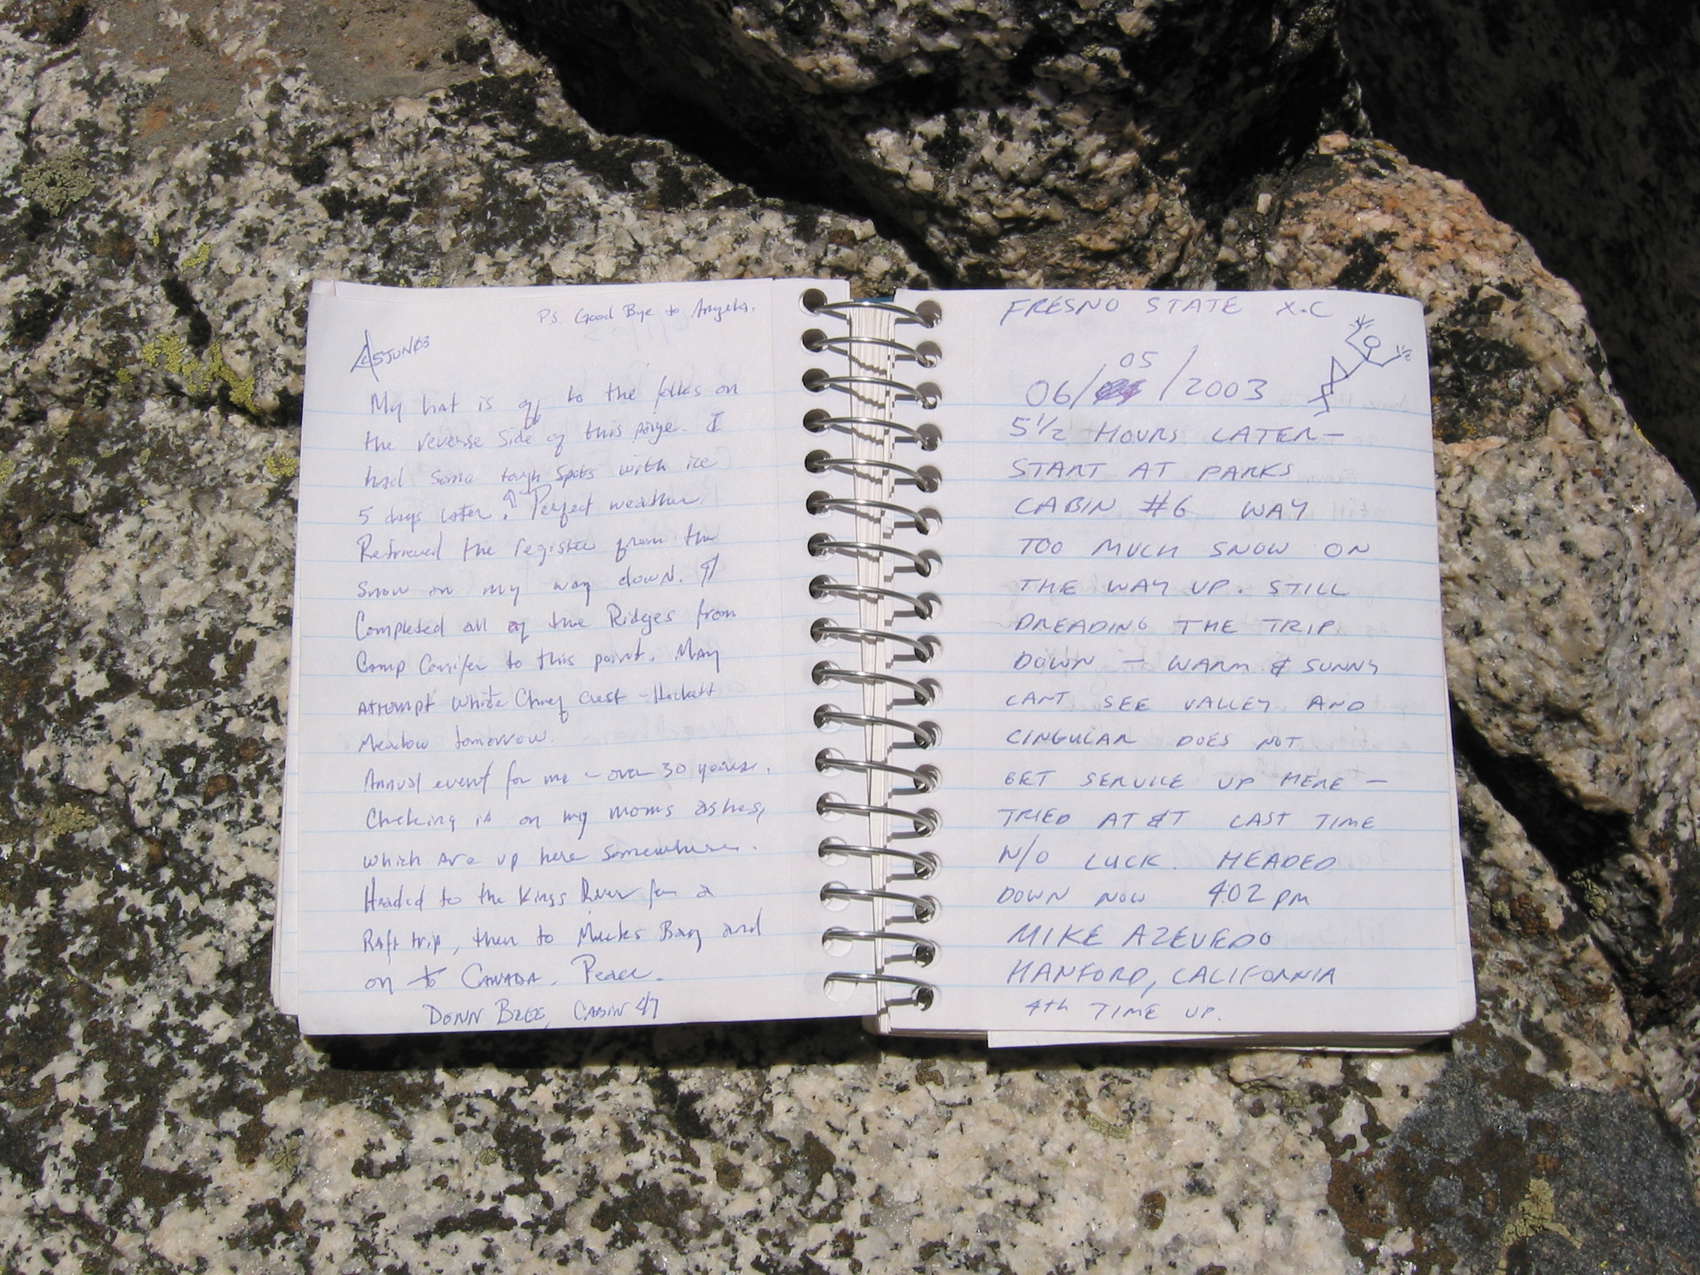 PS. Good Bye to Angela.
5JUN03
My hat is off to the folks on
the reverse side of this page. I
had some tough spots with ice
5 days later. Perfect weather
Retrieved the register from the
snow on my way down.
Completed all of the Ridges from
Camp Conifer to this point. May
attempt White Chief Crest - Hockett
Meadow tomorrow.
Annual event for me - over 30 years.
Checking in on my moms ashes,
which are up here somewhere.
Headed to the Kings River for a
Raft trip, then to Bay and
on to CANADA. Peace.
DONN CABIN
FRESNO STATE X.C
05
06/ /2003
5 1/2 HOURS LATER -
START AT PARKS
CABIN #6 WAY
TOO MUCH SNOW ON
THE WAY UP. STILL
DREADING THE TRIP
DOWN - WARM & SUNNY
CANT SEE VALLEY AND
CINGULAR DOES NOT
GET SERVICE UP HERE -
TRIED AT&T LAST TIME
N/O LUCK. HEADED
DOWN NOW 402 PM
MIKE AZEVEDO
HANFORD, CALIFORNIA
4th TIME UP.